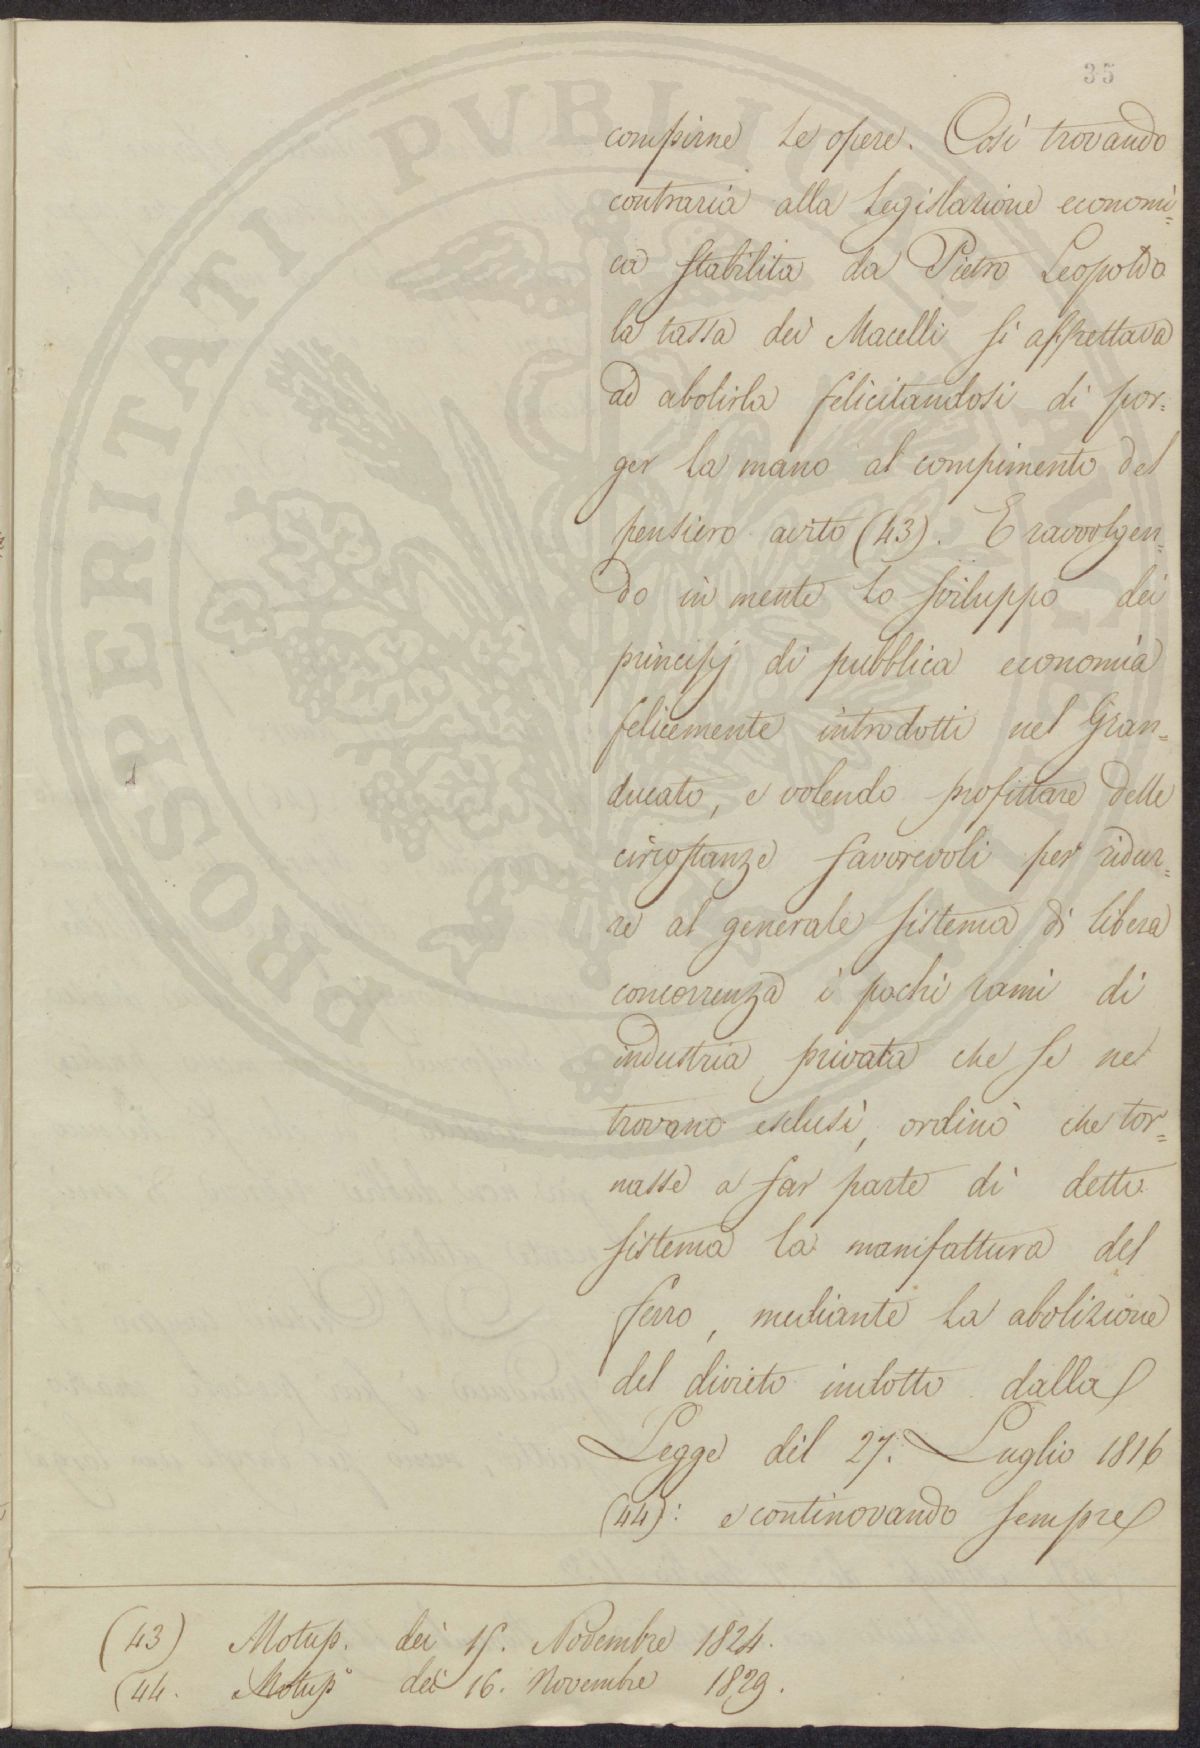 35
compirne le opere. Così trovando
contraria alla Legislazione economi=
ca stabilita da Pietro Leopoldo
la tassa dei Macelli si affrettava
ad abolirla felicitandosi di por=
ger la mano al compimento del
pensiero avito (43). E ravvolgen=
do in mente lo sviluppo dei
principj di pubblica economia
felicemente introdotti nel Gran=
ducato, e volendo profittare delle
circostanze favorevoli per ridur=
re al generale sistema di libera
concorrenza i pochi rami di
industria privata che se ne
trovano esclusi, ordinò che tor=
nasse a far parte di detto
sistema la manifattura del
ferro, mediante la abolizione
del divieto indotto dalla
Legge del 27. Luglio 1816
(44): e continovando sempre
(43) Motup. dei 15. Novembre 1824.
(44. Motup° dei 16. Novembre 1829.
PROSPERITATI PVBLICAE